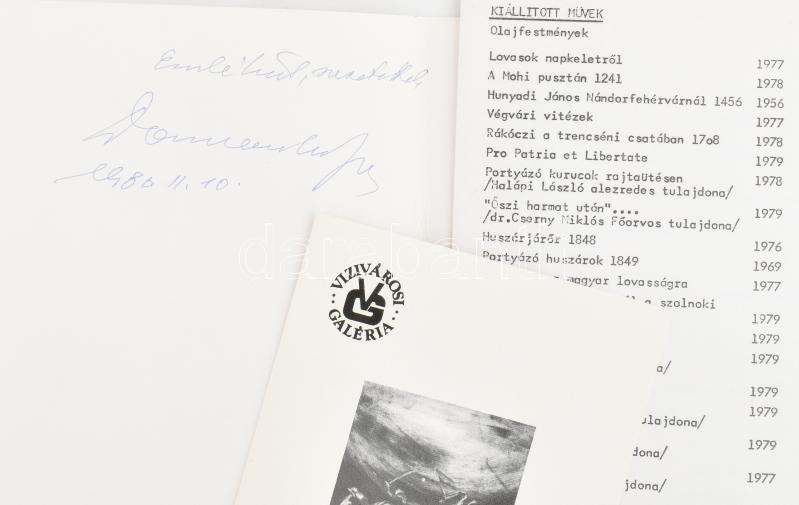 Emlékül, szeretettel,
1980 II. 10.
VIZIVÁROSI
GALÉRIA
KIÁLLITOTT MÜVEK
Olajfestmények
Lovasok napkeletről 1977
A Mohi pusztán 1241 1978
Hunyadi János Nándorfehérvárnál 1456 1956
Végvári vitézek 1977
Rákóczi a trencséni csatában 17o8 1978
Pro Patria et Libertate 1979
Portyázó kurucok rajtaütésen 1978
/Halápi László alezredes tulajdona/
"Őszi harmat után".... 1979
/dr.Cserny Miklós Főorvos tulajdona/
Huszárjárőr 1848 1976
Portyázó huszárok 1849 1969
magyar lovasságra 1977
a szolnoki
1979
1979
1979
a/
1979
1979
tulajdona/
1979
dona/
1977
jdona/
darabanth